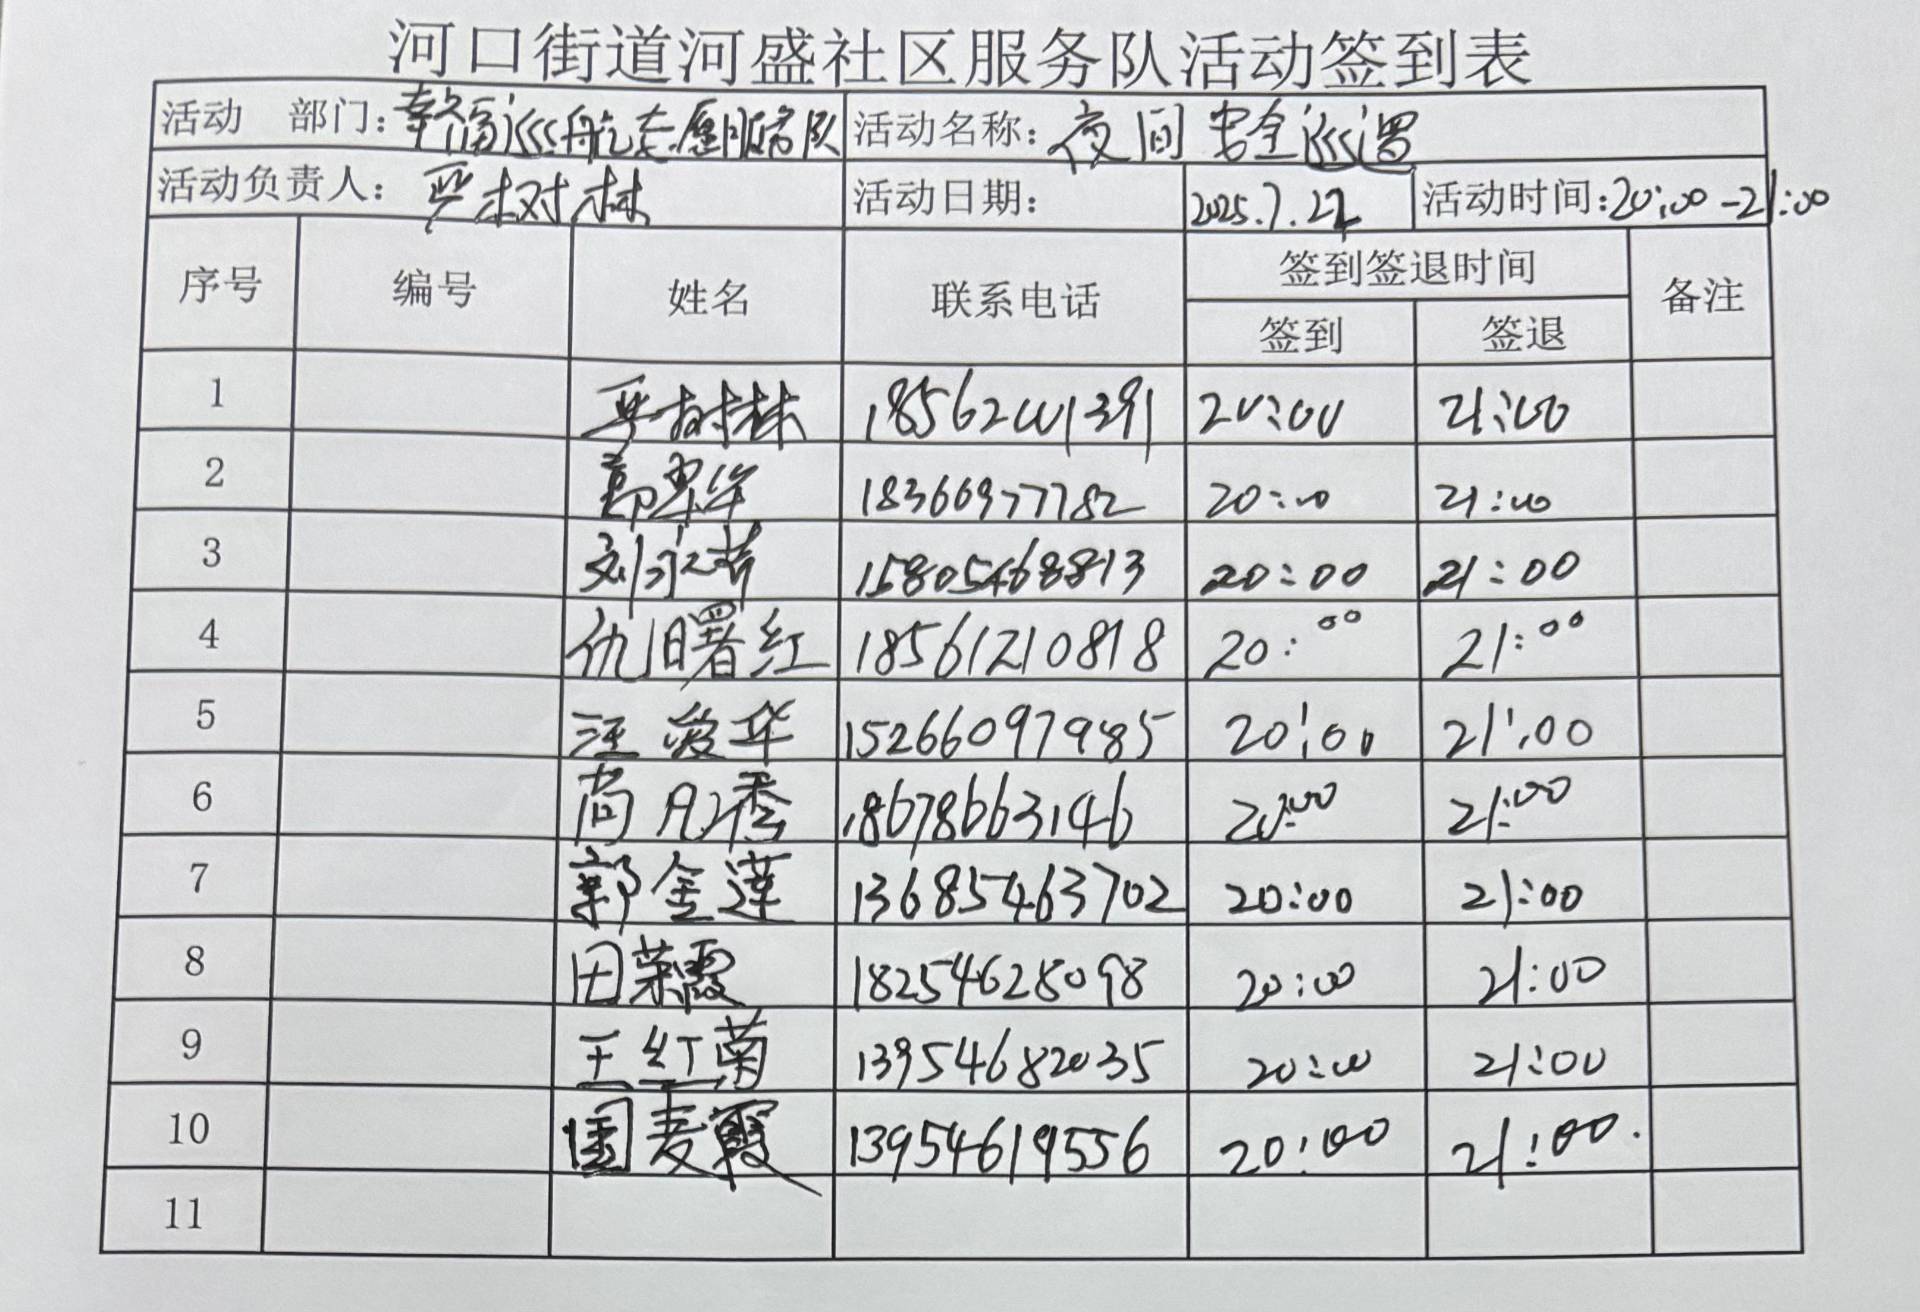 河口街道河盛社区服务队活动签到表
活动 部门：幸福巡航志愿服务队 活动名称：夜间安全巡逻
活动负责人：严树林 活动日期： 2025.7.22 活动时间：20:00-21:00
序号 编号 姓名 联系电话 签到签退时间 备注
签到 签退
1 严树林 18562001391 20:00 21:00
2 18366977782 20:00 21:00
3 刘永芳 15805468813 20:00 21:00
4 仇曙红 18561210818 20:00 21:00
5 汪爱华 15266097985 20:00 21:00
6 尚凡秀 18678663146 20:00 21:00
7 郭金莲 13685463702 20:00 21:00
8 田荣霞 18254628098 20:00 21:00
9 王红菊 13954682035 20:00 21:00
10 国麦霞 13954619556 20:00 21:00.
11